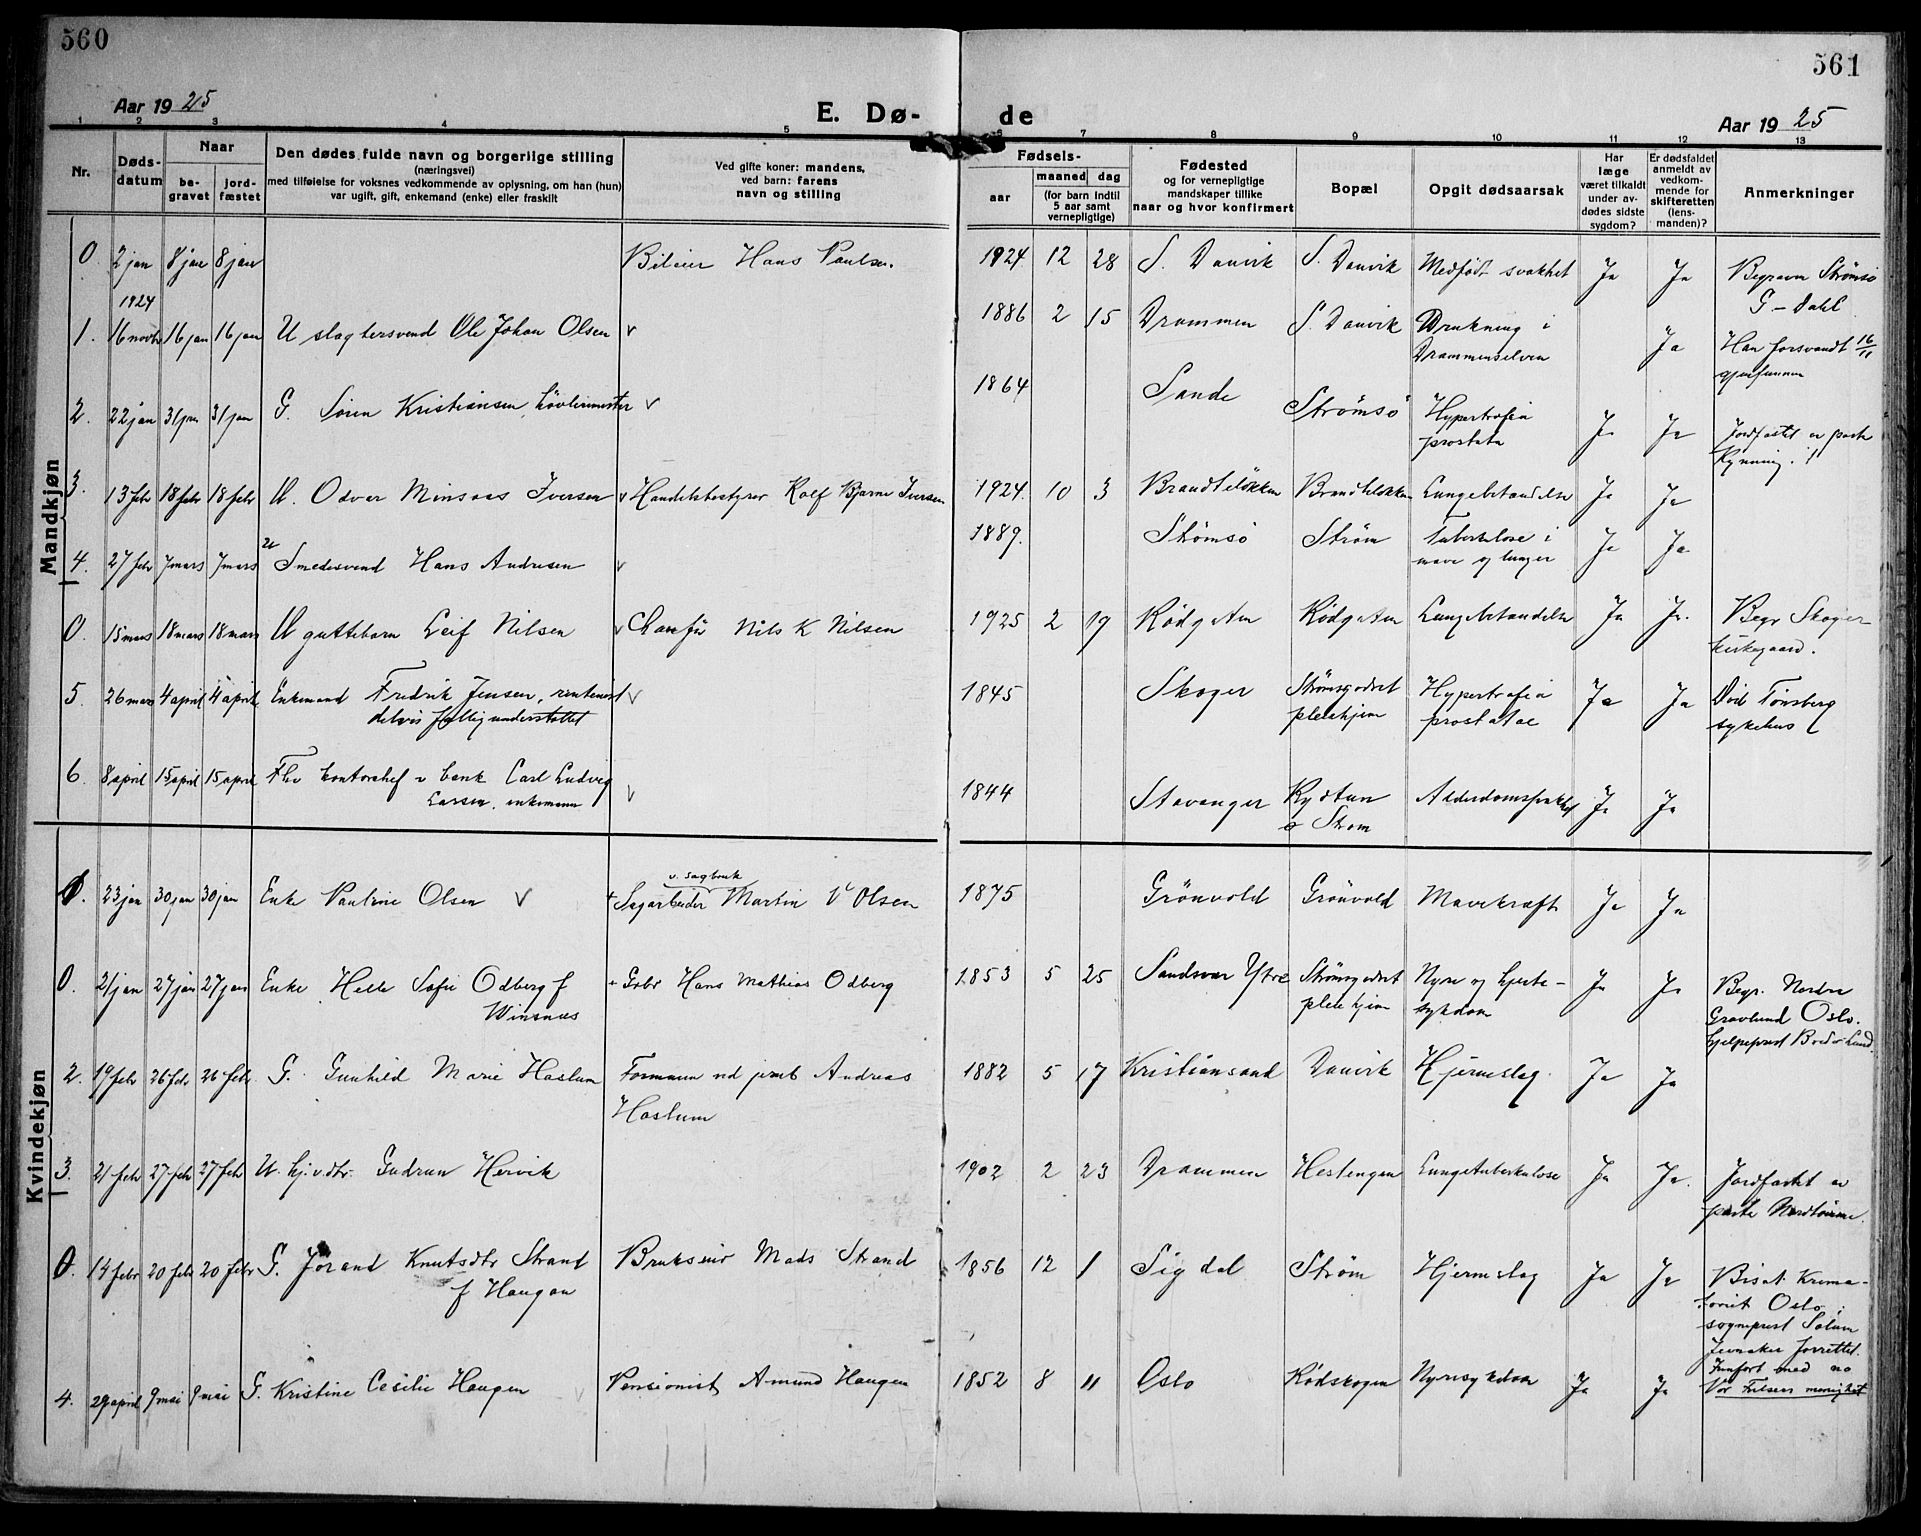 560
561
Aar 1925
E. Dø-
de
Aar 1925
1 2 3 4 5 6 7 8 9 10 11 12 13
Nr.
Døds-
datum
Naar
be-
gravet
jord-
fæstet
Den dødes fulde navn og borgerlige stilling
(næringsvei)
med tilføielse for voksnes vedkommende av oplysning, om han (hun)
var ugift, gift, enkemand (enke) eller fraskilt
Ved gifte koner: mandens,
ved barn: farens
navn og stilling
Fødsels-
aar
maaned dag
(for barn indtil
5 aar samt
vernepligtige)
Fødested
og for vernepligtige
mandskaper tillike
naar og hvor konfirmert
Bopæl
Opgit dødsaarsak
Har
læge
været tilkaldt
under av-
dødes sidste
sygdom?
Er dødsfaldet
anmeldt av
vedkom-
mende for
skifteretten
(lens-
manden)?
Anmerkninger
Mandkjøn
0 2 jan 8 jan 8 jan Bileier Hans Paulsen. 1924 12 28 S. Danvik S. Danvik Medfödt svakhet Ja Ja Begraven Strømsö
G - Dahl
1924
1. 16 novbr 16 jan 16 jan U slagtersvend Ole Johan Olsen v 1886 2 15 Drammen S. Danvik Drukning i
Drammenselven Ja Han forsvandt 16/11
gjenfunnen
2. 22 jan 31 jan 31 jan G. Sören Kristiansen, hövlermester v 1864 Sande Strømsö Hypertrofia
prostata Ja Ja Jordfæstet av
3. 13 febr 18 febr 18 febr U. Odver Minsaas Iversen v Handelsbestyrer Rolf Bjarne Iversen 1924. 10 3 Brandtelökken Brandtelokken Lungebetændelse Ja Ja
4. 27 febr 7 mars 7 mars U Smedesvend Hans Andresen v 1889. Strömsö Ström Tuberkulose i
mave og lunger Ja Ja
0. 15 mars 18 mars 18 mars U guttebarn Leif Nilsen v Chauffør Nils K Nilsen 1925 2 19 Rödgaten Rödgaten Lungebetændelse Ja Ja. Begr Skoger
kirkegaard.
5. 26 mars 4 april 4 april Enkemand Fredrik Jensen, rentenist v
delvis fattigunderstöttet 1845 Skoger Strömsgodset
pleiehjem Hypertrofia
prostatae Ja Ja Död Tönsberg
sykehus
6. 8 april 15 april 15 april Fhv kontorchef v bank Carl Ludvig
Larsen, enkemann v 1844 Stavanger
Ström Alderdomssvakhet Ja Ja
Kvindekjøn
1. 23 jan 30 jan 30 jan Enke Pauline Olsen v + Sagarbeider v. sagbruk Martin V Olsen 1875 Grönvold Grönvold Mavekræft Ja Ja
0. 21 jan 27 jan 27 jan Enke Helle Sofie Odberg f
Winsnæs + Grbr Hans Mathias Odberg 1853 5 25 Sandsvær Ytre Strömsgodset
pleiehjem Nyre og hjerte-
sykdom Ja Ja Begr. Nordre
Gravlund Oslo.
hjelpeprest Lund.
2. 19 febr 26 febr 26 febr G. Gunhild Marie Haslum Formann ved jernb Andreas
Haslum 1882 5 17 Kristiansand Danvik Hjerneslag. Ja Ja
3. 21 febr 27 febr 27 febr U. hj.v.dtr. Gudrun Hervik 1902 2 23 Drammen Hestengen Lungetuberkulose Ja Ja. Jordfæstet av
0. 14 febr 20 febr 20 febr G. Jorand Knutsdtr Strand
f Haugan Brukseier Mads Strand 1856 12 1 Sigdal Ström Hjerneslag Ja Ja Bisat Krema-
toriet Oslo.
sogneprest Solum
Jevnaker forrettet.
4. 29 april 9 mai 9 mai G. Kristine Cesilie Haugen v Pensionist Amund Haugen 1852 8 11 Oslo Rödskogen Nyresykdom Ja Ja Innfört med no
Vor Frelsers menighet